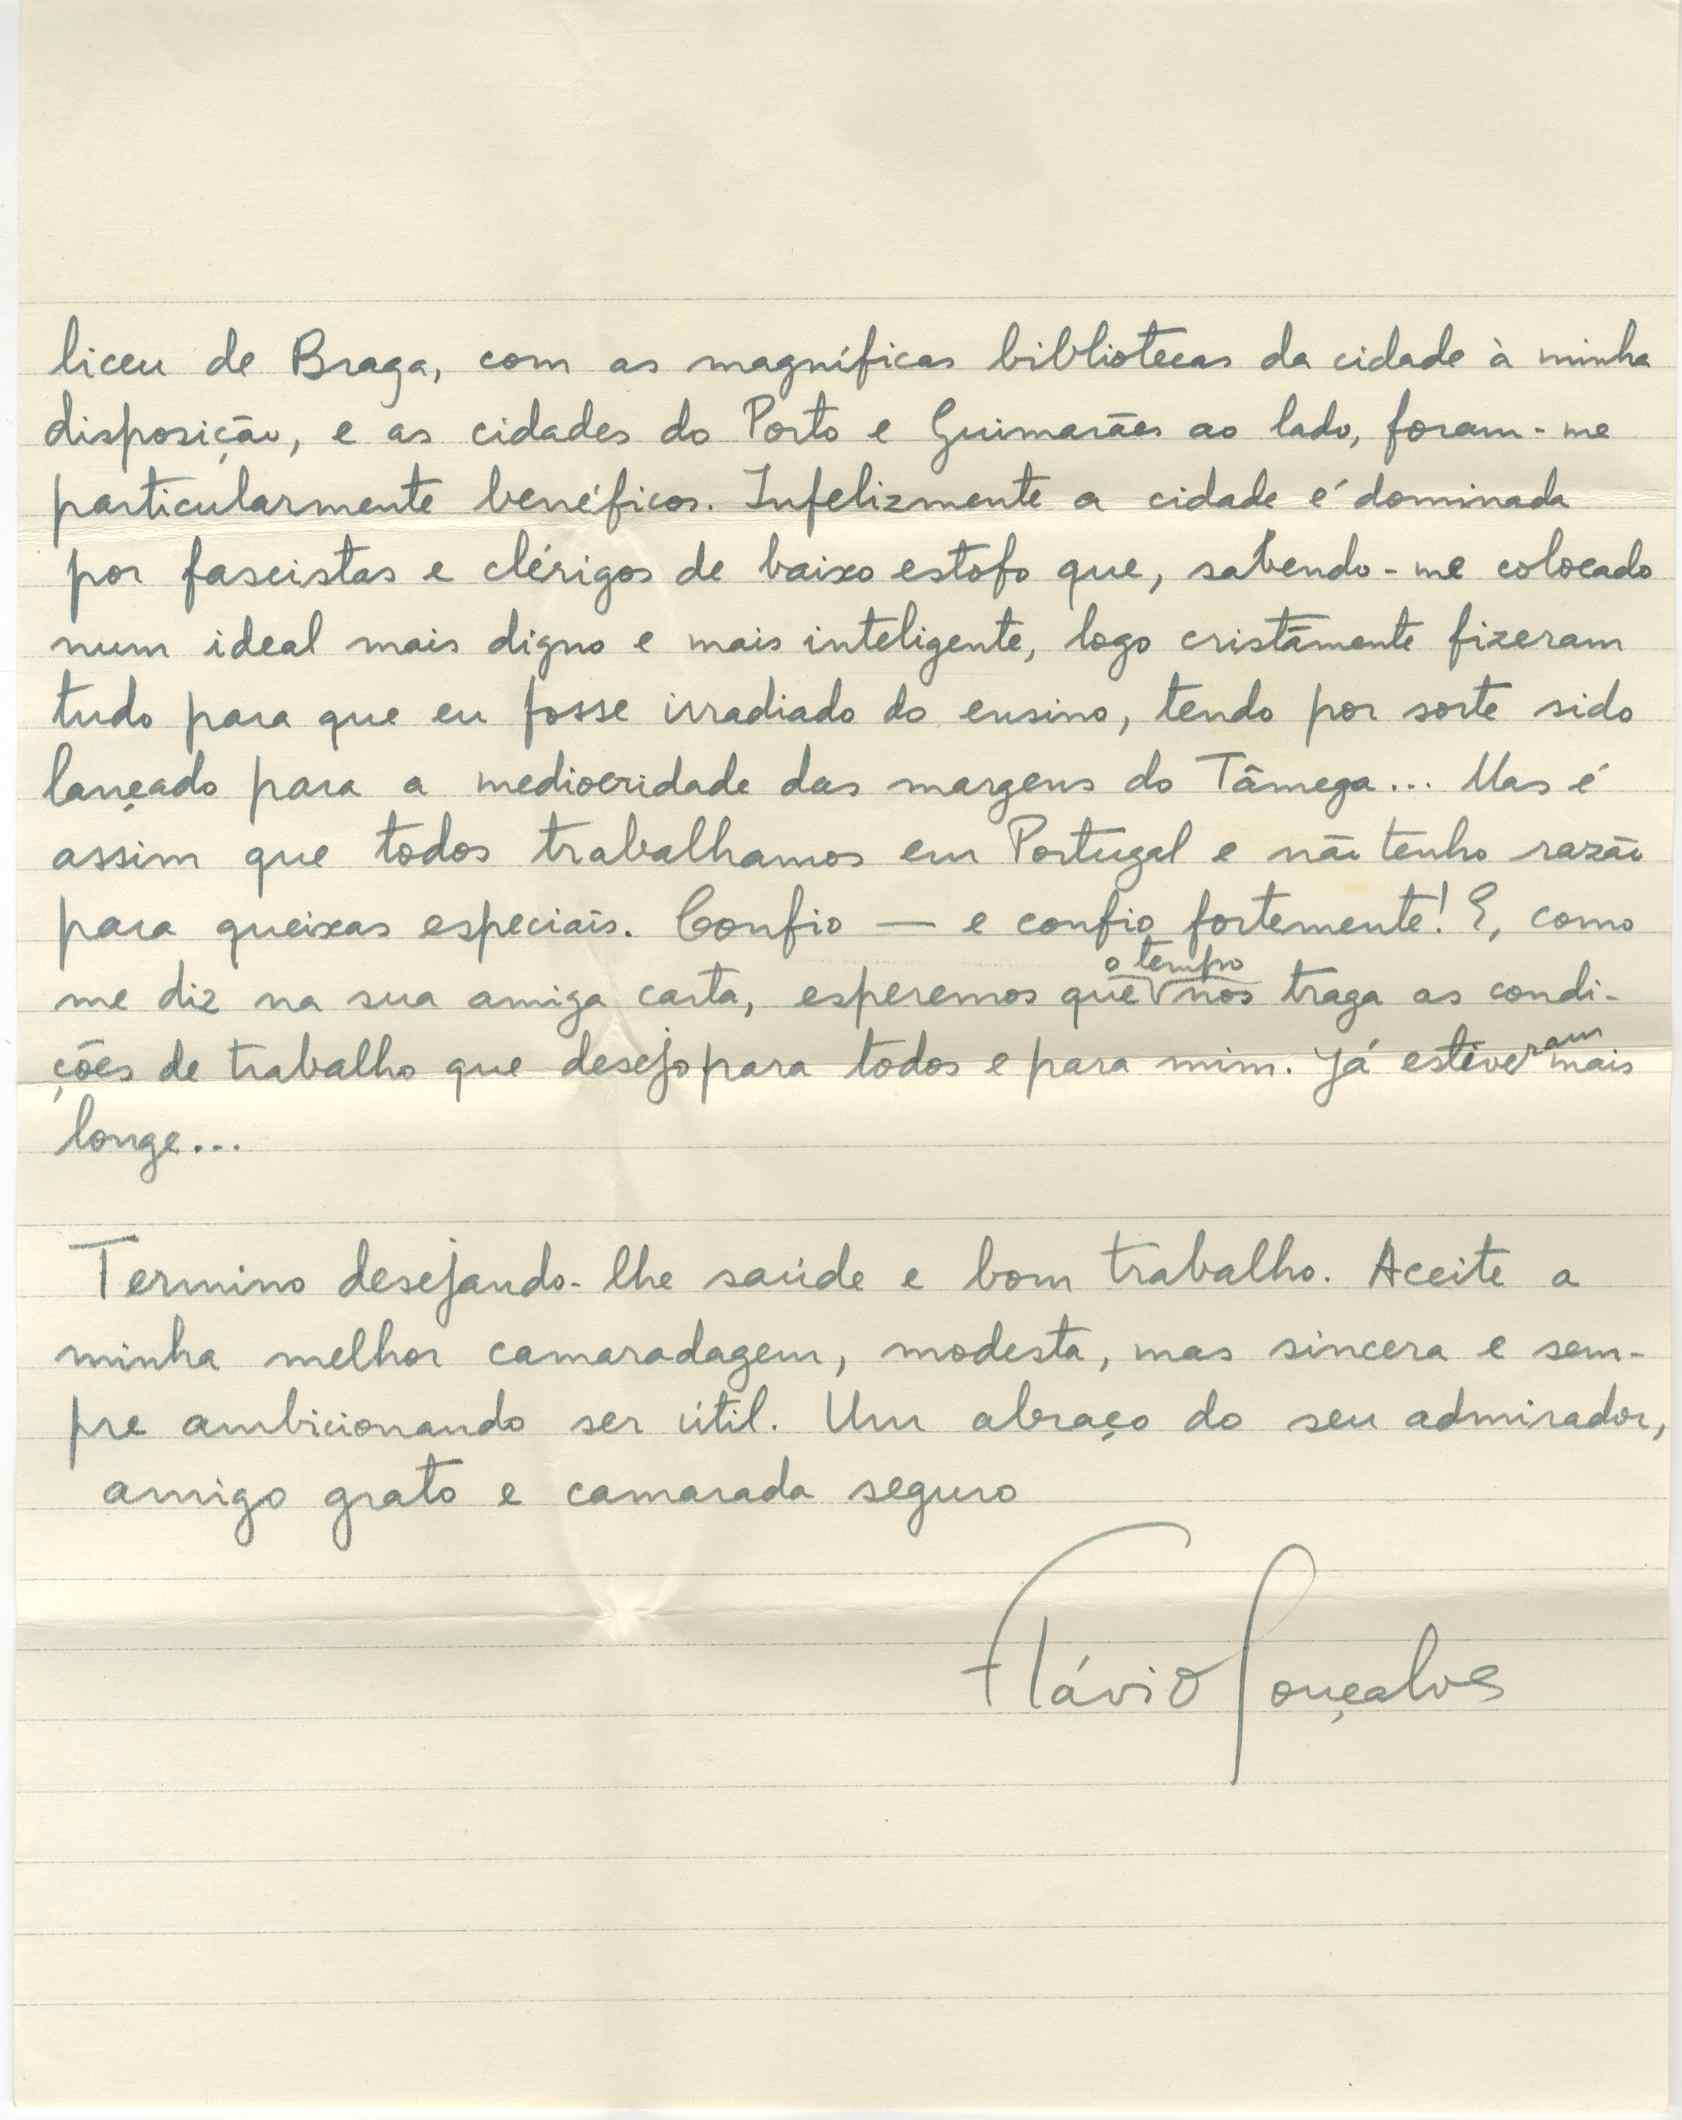 liceu de Braga, com as magníficas bibliotecas da cidade à minha
disposição, e as cidades do Porto e Guimarães ao lado, foram-me
particularmente benéficos. Infelizmente a cidade é dominada
por fascistas e clérigos de baixo estofo que, sabendo-me colocado
num ideal mais digno e mais inteligente, logo cristãmente fizeram
tudo para que eu fosse irradiado do ensino, tendo por sorte sido
lançado para a mediocridade das margens do Tâmega... Mas é
assim que todos trabalhamos em Portugal e não tenho razão
para queixas especiais. Confio — e confio fortemente! E, como
me diz na sua amiga carta, esperemos que o tempo nos traga as condi-
ções de trabalho que desejo para todos e para mim. Já estiveram mais
longe...
Termino desejando-lhe saúde e bom trabalho. Aceite a
minha melhor camaradagem, modesta, mas sincera e sem-
pre ambicionando ser útil. Um abraço do seu admirador,
amigo grato e camarada seguro
Flávio Gonçalves